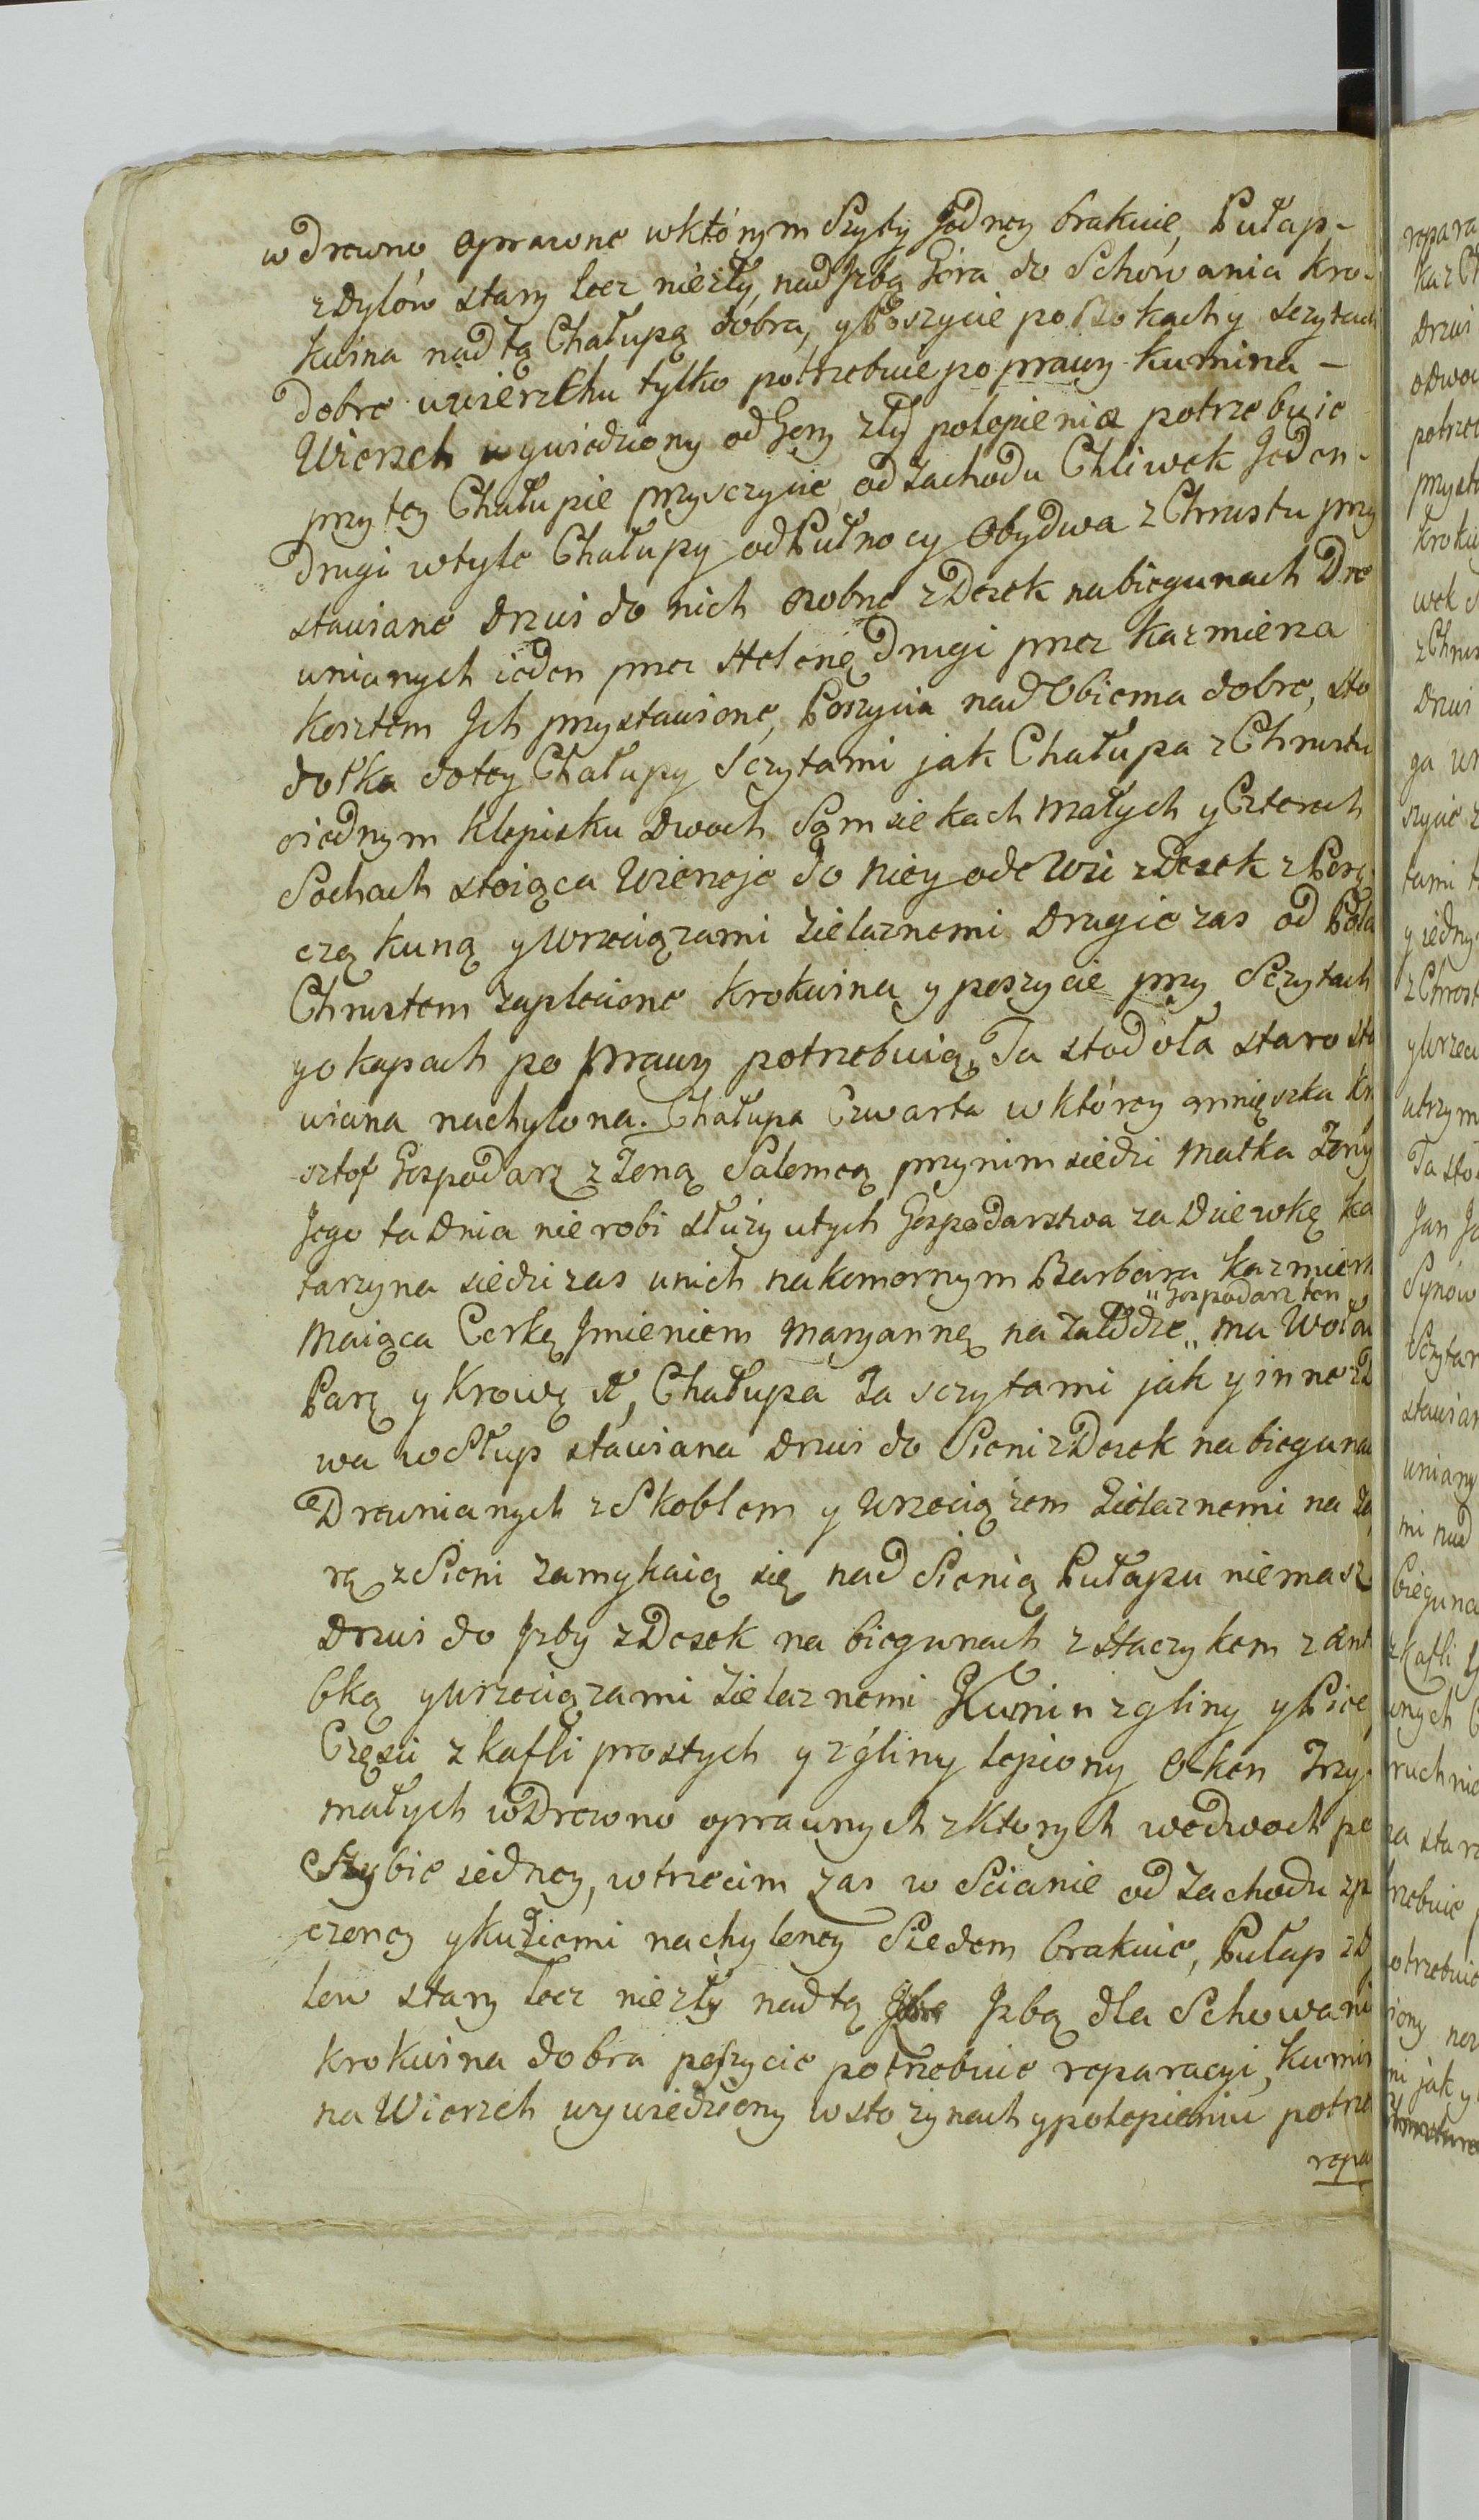 w Drewno oprawne w którym Szyby Jedney brakuie, Pułap-
z dylów stary lecz niezły, nad Jzbą Góra do Schowania Kro-
kwina nad tą Chałupą dobra, y Poszycie po Bokach y Sczytach
Dobre u wierzchu tylko potrzebuie poprawy kumina -
Wierzch wywiedziony od Gory zły polepienia potrzebuie
przy tey Chałupie przyszczycie od Zachodu Chliwek Jeden-
Drugi w tyle Chałupy od Pułnocy Obydwa z Chrustu przy
stawiane Drzwi do nich osobne z Desek na biegunach Dre
wnianych ieden przez Helenę Drugi przez Kazmierza
Kosztem Jch przystawione, Poszycia nad Obiema dobre, Sto
dołka do tey Chałupy Sczytami jak Chałupa z Chrustu
o iednym Klepisku Dwoch Sąmsiekach Małych y Czterech
Sochach stoiąca Wierzeje do Niey ode Wsi z Desek z Porę
czą kuną y Wrzeciązami żielaznemi Drugie zas od Pola
Chrustem zaplecione Krokwina y poszycie przy Sczytach
y okapach poprawy potrzebuią, Ta stodoła staro sta
wiana nachylona. Chałupa Czwarta w którey mnięszka Kr
sztof Gospodarz z Żoną Salomeą przy nim siedzi Matka Żony
Jego ta Dnia nie robi służy u tych Gospodarstwa za Dziewkę Ka
tarzyna siedzi zas u nich na komornym Barbara Kazmierk
" Gospodarz ten
Maiąca Corkę Jmieniem Maryannę na załodze " ma Wołow
Parę y Krowę Chałupa Ta sczytami jak y inne z D
wa w Słup stawiana Drzwi do Sieni z Desek na biegunac
Drewnianych z Skoblem y Wrzeciązem Żielaznemi na Za
rę z Sieni zamykaią się nad Sienią Pułapu niemasz
Drzwi do Jzby z Desek na biegunach z Haczykem z Ant
bką y Wrzeciązami Żielaznemi Kumin z gliny y Piec
Częsci z kafli prostych y z gliny lepiony Okon Trzy-
małych w Drewno oprawnych z Ktorych we dwoch po
Szybie iedney, w trzecim zas w Scianie od Zachodu
czoney y ku Ziemi nachyloney Siedem brakuie, Pułap z Dy
low stary lecz niezły nad tą Jzbą dla Schowani
krokwina dobra poszycie potrzebuie reparacyi, kumin
na Wierzch wywiedziony w stożynach y polepieniu potrze
repa